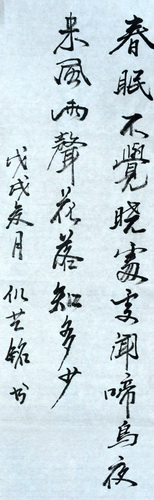 春眠不覺曉處處聞啼鳥夜
来風雨聲花落知多少
戊戌夏月 仉芝銘书